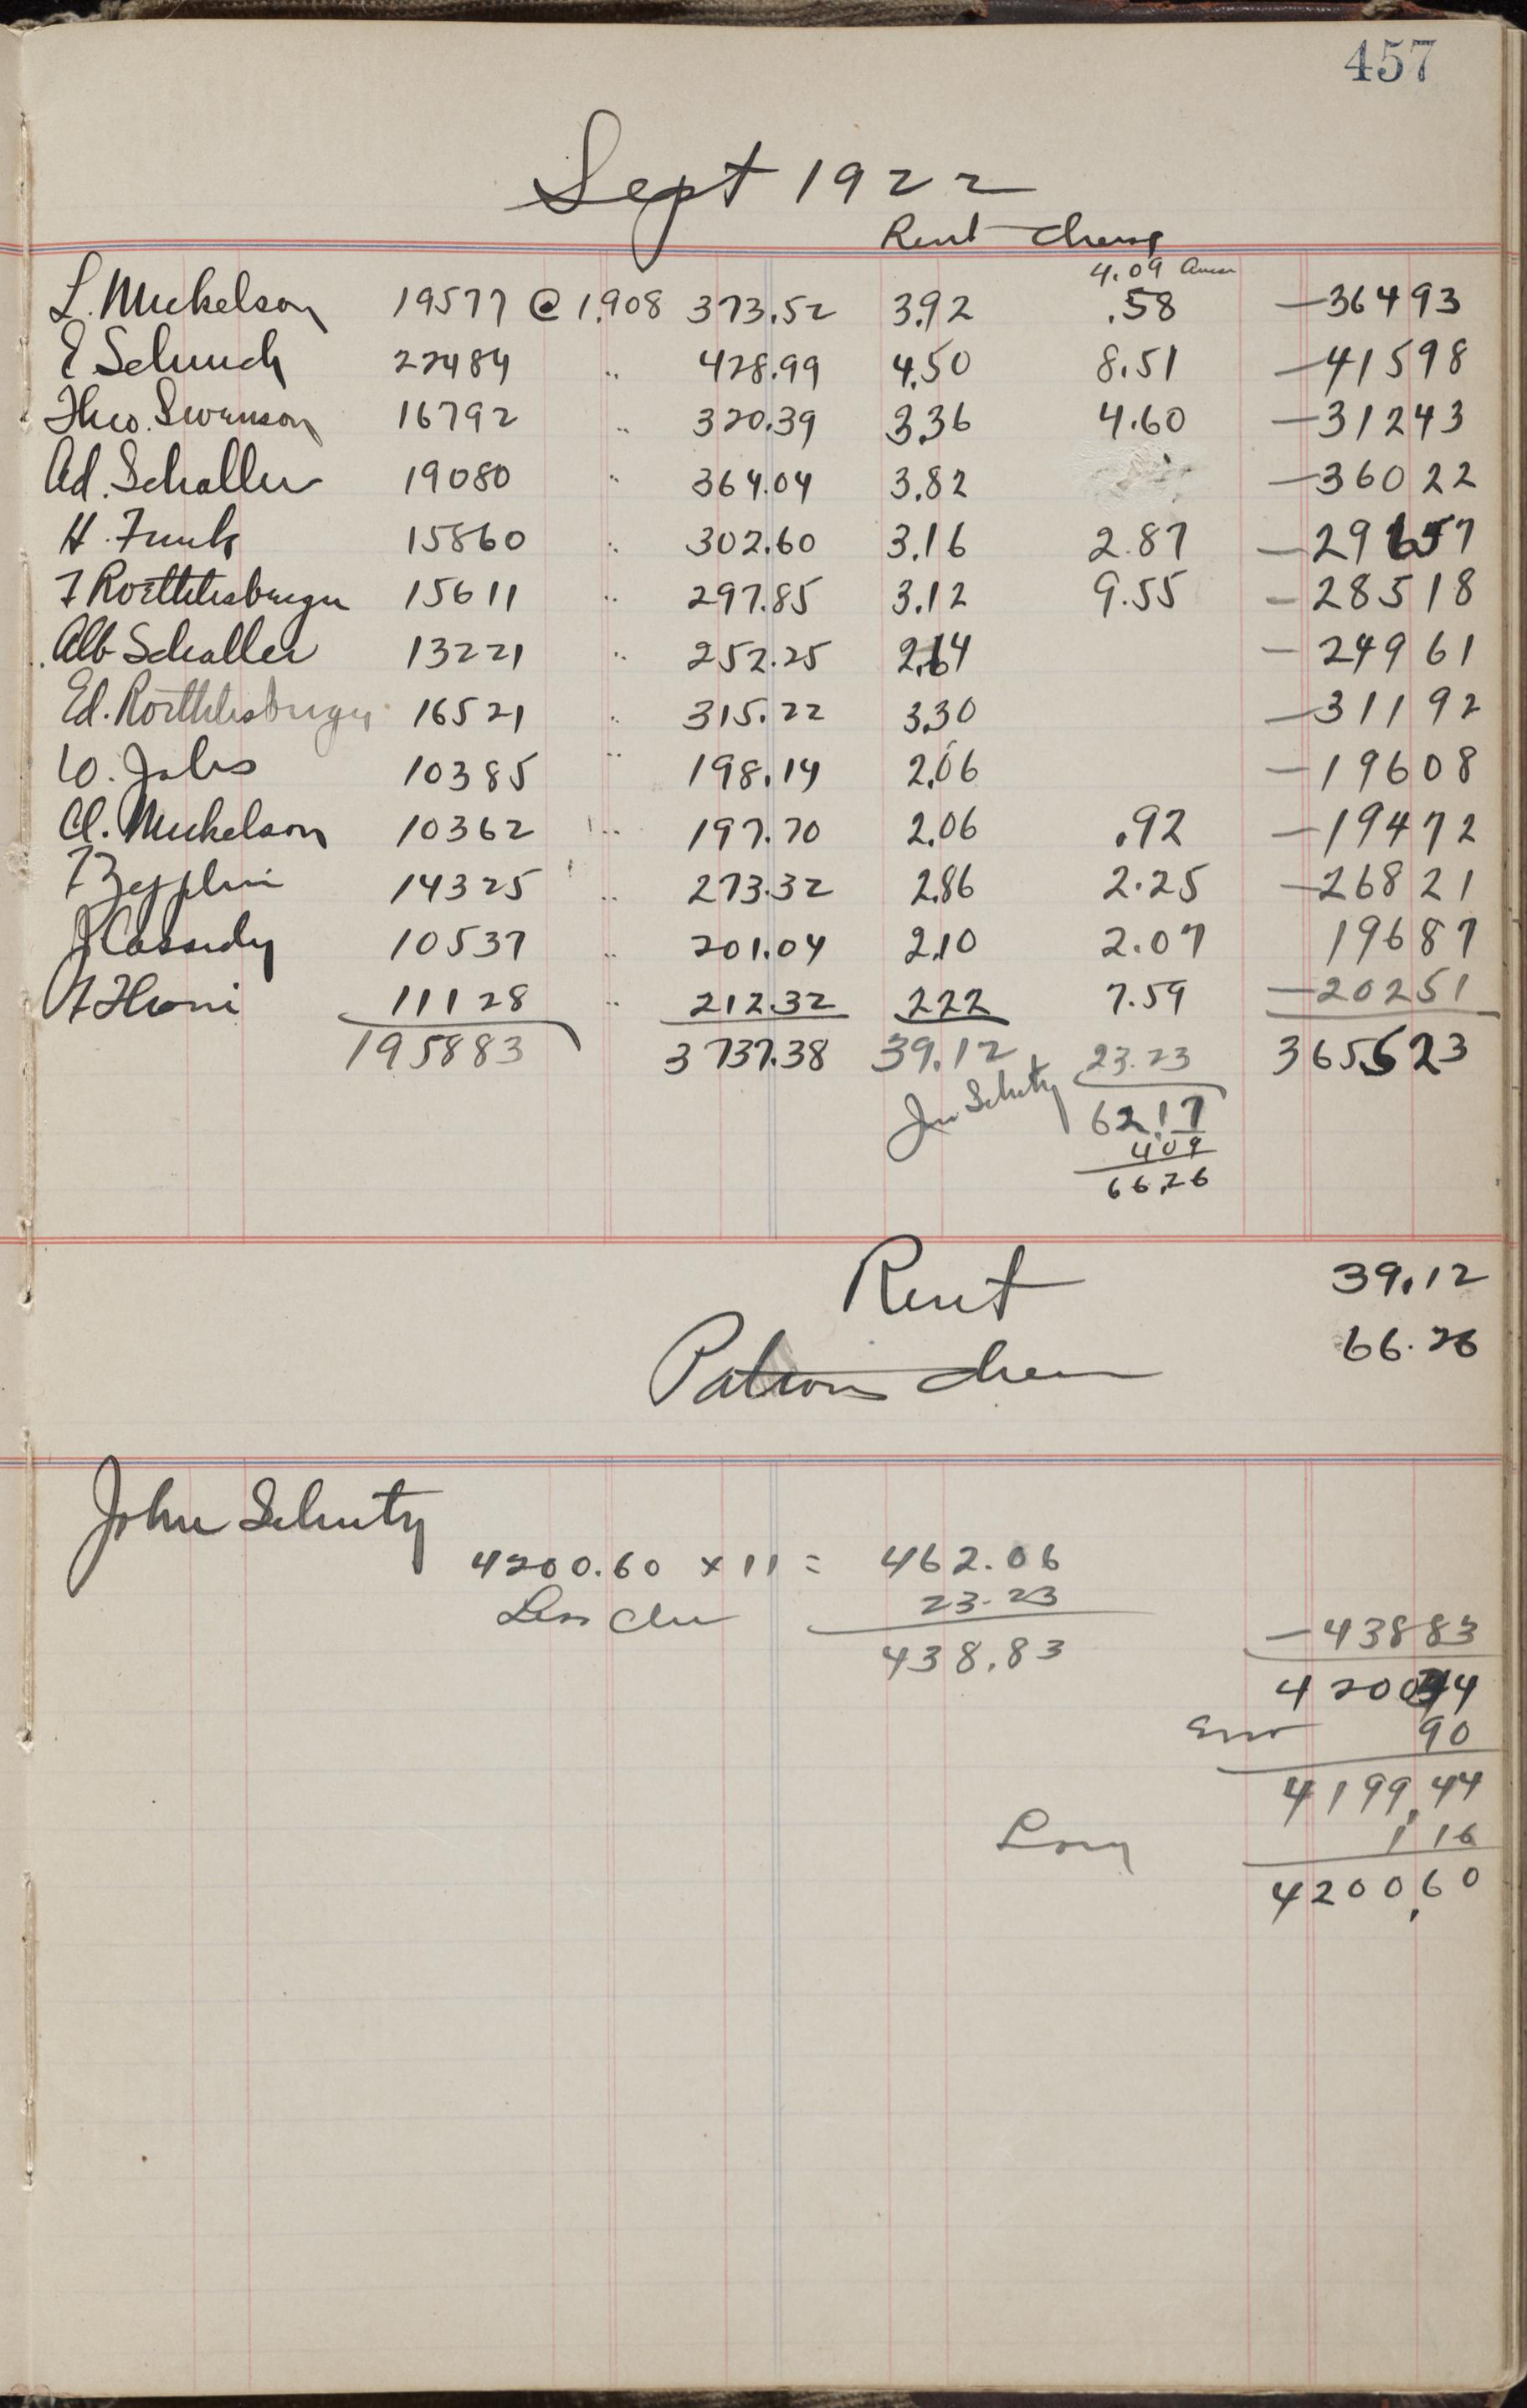 457
Sept 1922
Rent Cheese
4.09 Amer
L. Mickelson 19577 @ 1.908 373.52 3.92 .58 —36493
E Schuch 22484 " 428.99 4.50 8.51 —41598
Theo. Swenson 16792 " 320.39 3.36 4.60 —31243
Ad. Schaller 19080 " 364.04 3.82 —36022
H. Funk 15860 " 302.60 3.16 2.87 —29657
F Roethlisberger 15611 " 297.85 3.12 9.55 —28518
Alb Schaller 13221 " 252.25 2.64 —24961
Ed. Roethlisberger 16521 " 315.22 3.30 —31192
W. Jabs 10385 " 198.14 2.06 —19608
Cl. Mickelson 10362 " 197.70 2.06 .92 —19472
F Zepplin 14325 " 273.32 2.86 2.25 —26821
J Cassidy 10537 " 201.04 2.10 2.07 19687
11128 " 212.32 2.22 7.59 —20251
195883 3737.38 39.12 23.23 365523
Jn Schutz 62.17
4.09
66.26
Rent 39.12
Patrons chee 66.26
John Schutz
4200.60 x 11 = 462.06
Less Che 23.23
438.83 —43883
420044
Err 90
4199.44
Long 1 16
4200.60